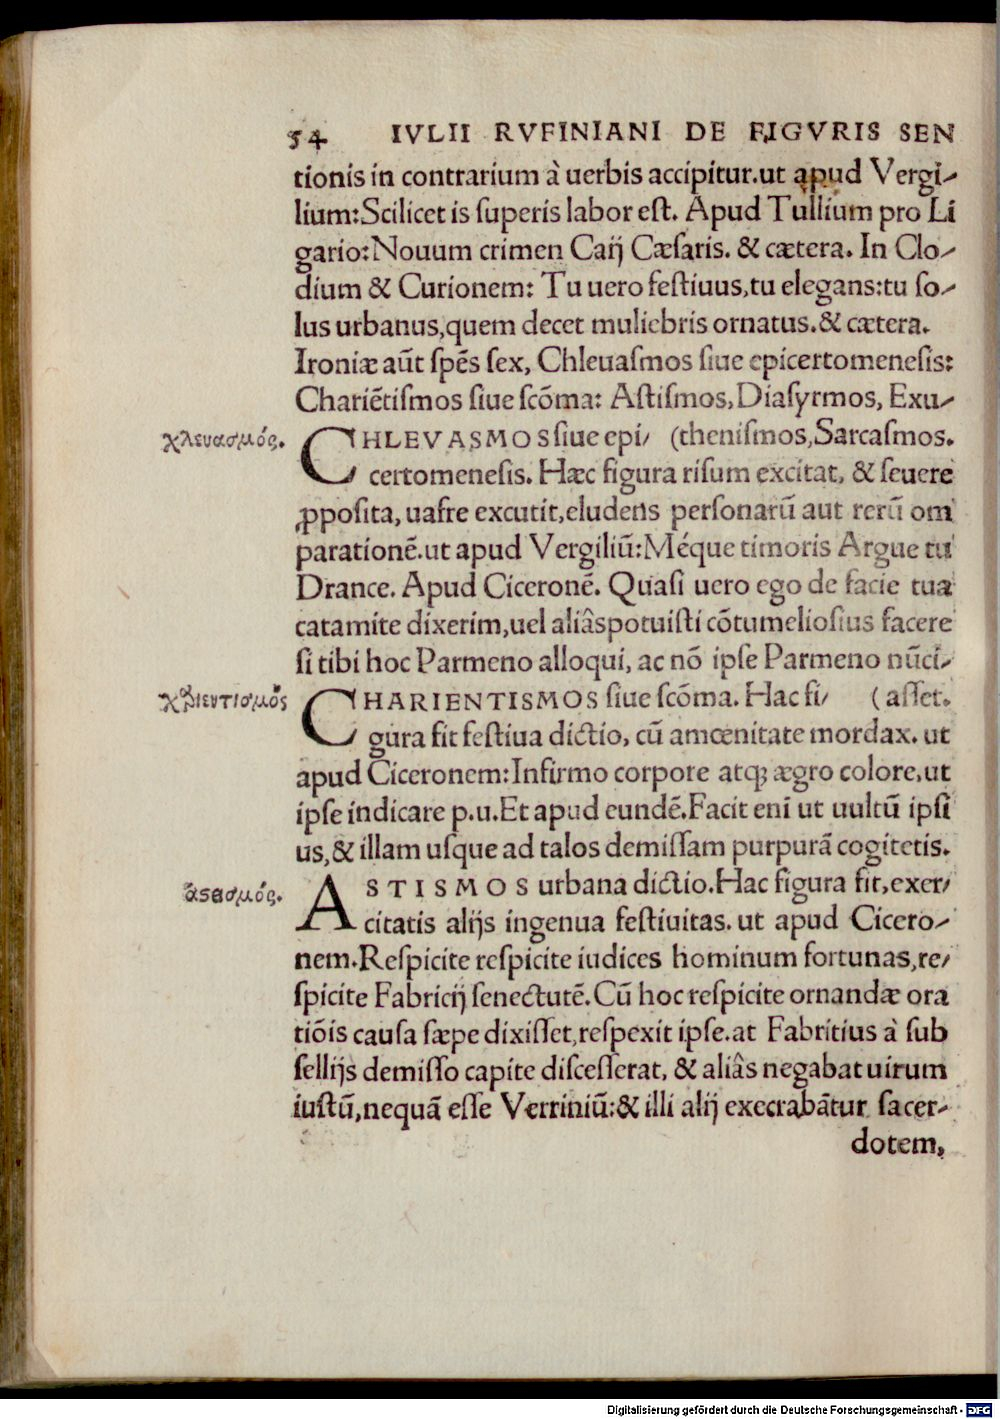 54 IVLII RVFINIANI DE FIGVRIS SEN
tionis in contrarium à uerbis accipitur.ut apud Vergi-
lium:Scilicet is superis labor est. Apud Tullium pro Li
gario:Nouum crimen Caij Cæsaris. & cætera. In Clo-
dium & Curionem: Tu uero festiuus,tu elegans:tu so-
lus urbanus,quem decet muliebris ornatus.& cætera.
Ironiæ aūt spēs sex, Chleuasmos siue epicertomenesis:
Chariētismos siue scōma: Astismos,Diasyrmos, Exu-
χλευασμός.
CHLEVASMOS siue epi/ (thenismos,Sarcasmos.
certomenesis. Hæc figura risum excitat, & seuere
ꝓposita, uafre excutit,eludens personarū aut rerū om
parationē.ut apud Vergiliū:Méque timoris Argue tu
Drance. Apud Ciceronē. Quasi uero ego de facie tua
catamite dixerim,uel aliâs potuisti cōtumeliosius facere
si tibi hoc Parmeno alloqui, ac nō ipse Parmeno nūci-
χαριεντισμός
CHARIENTISMOS siue scōma. Hac fi/ (asset.
gura fit festiua dictio, cū amœnitate mordax. ut
apud Ciceronem:Infirmo corpore atq; ægro colore,ut
ipse indicare p.u.Et apud eundē.Facit enī ut uultū ipsi
us,& illam usque ad talos demissam purpurā cogitetis.
ἀστεισμός.
ASTISMOS urbana dictio.Hac figura fit,exer/
citatis alijs ingenua festiuitas. ut apud Cicero-
nem.Respicite respicite iudices hominum fortunas,re/
spicite Fabricij senectutē.Cū hoc respicite ornandæ ora
tiōis causa sæpe dixisset,respexit ipse.at Fabritius à sub
sellijs demisso capite discesserat, & aliâs negabat uirum
iustū,nequā esse Verriniū:& illi alij execrabātur sacer-
dotem,
Digitalisierung gefördert durch die Deutsche Forschungsgemeinschaft - DFG